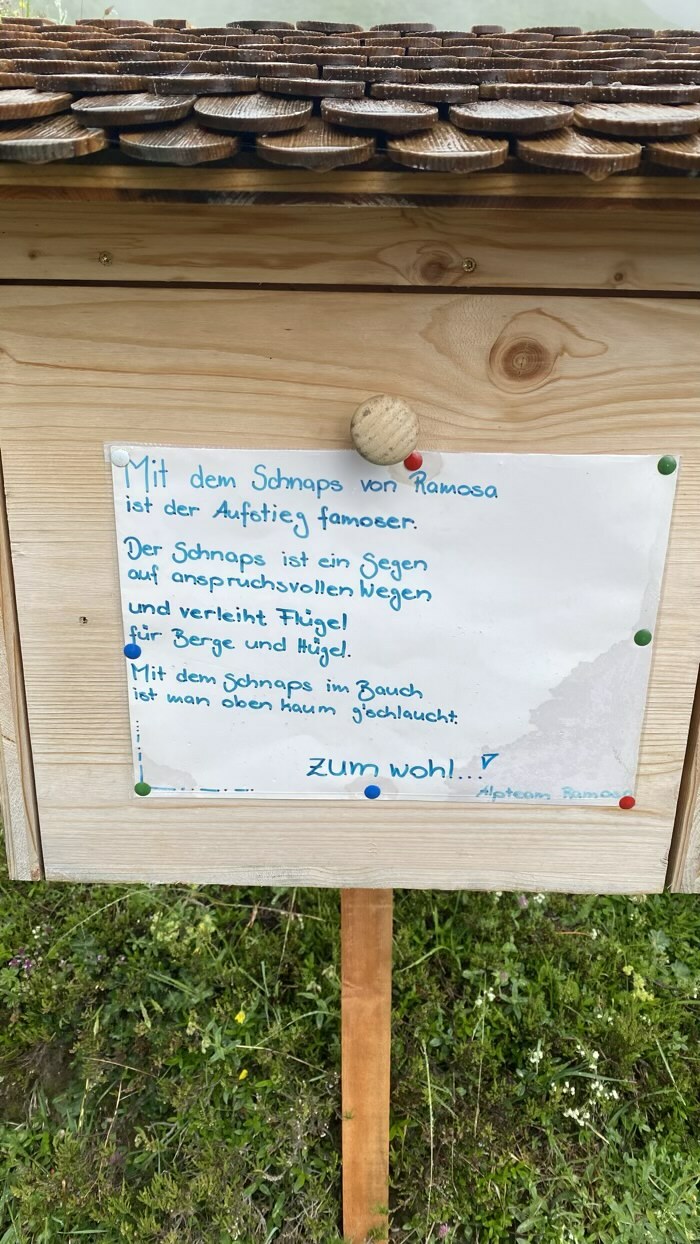 Mit dem Schnaps von Ramosa
ist der Aufstieg famoser.
Der Schnaps ist ein Segen
auf anspruchsvollen Wegen
und verleiht Flügel
für Berge und Hügel.
Mit dem Schnaps im Bauch
ist man oben kaum g'schlaucht.
Zum wohl...!
Alpteam Ramosa